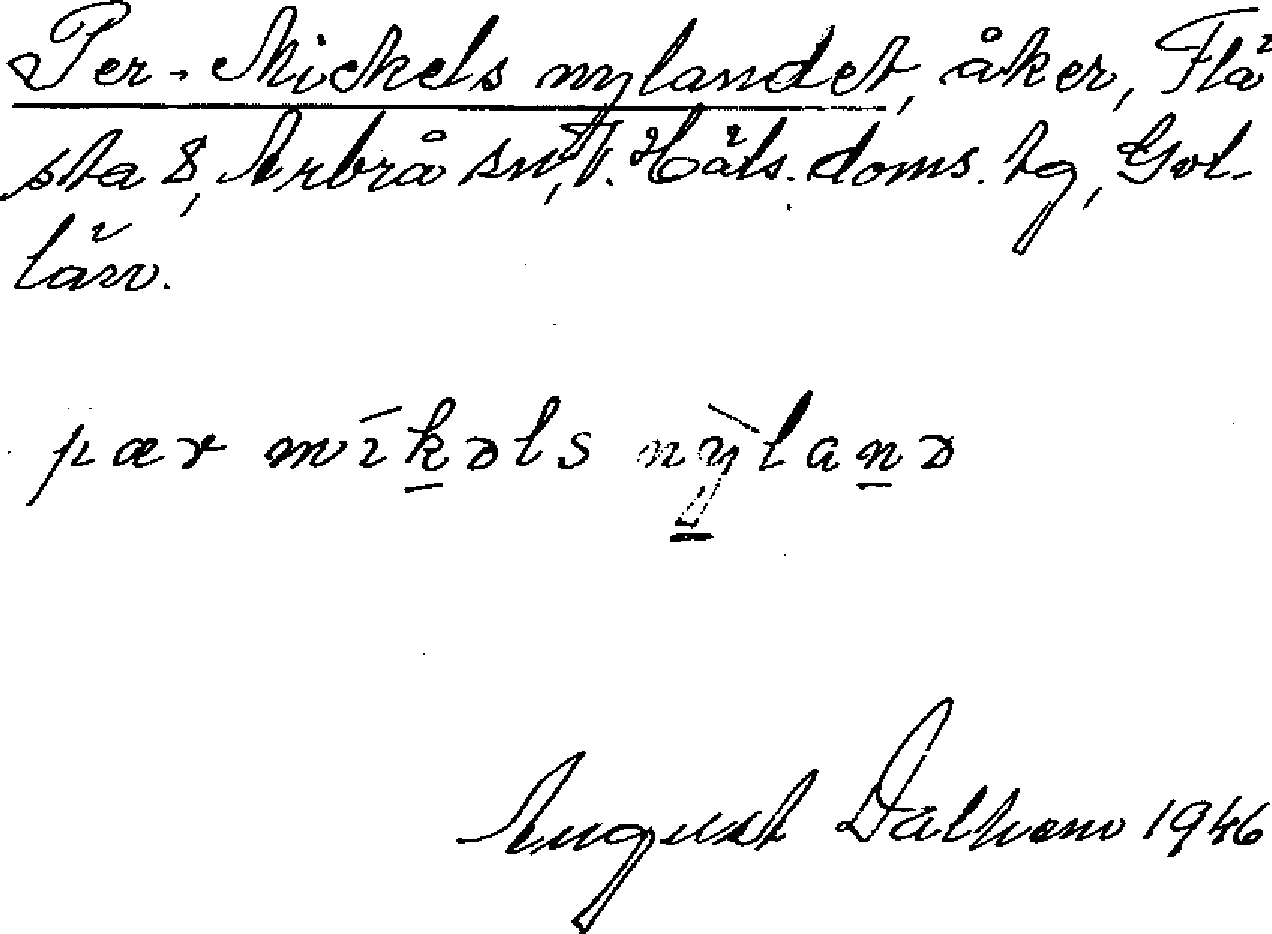 Per-Mickels nylandet, åker, Flä
sta 8, Arbrå sn, V. Häls. doms. tg, Gvl.
län.
pær mīkəls nỳlanə
August Dalhem 1946